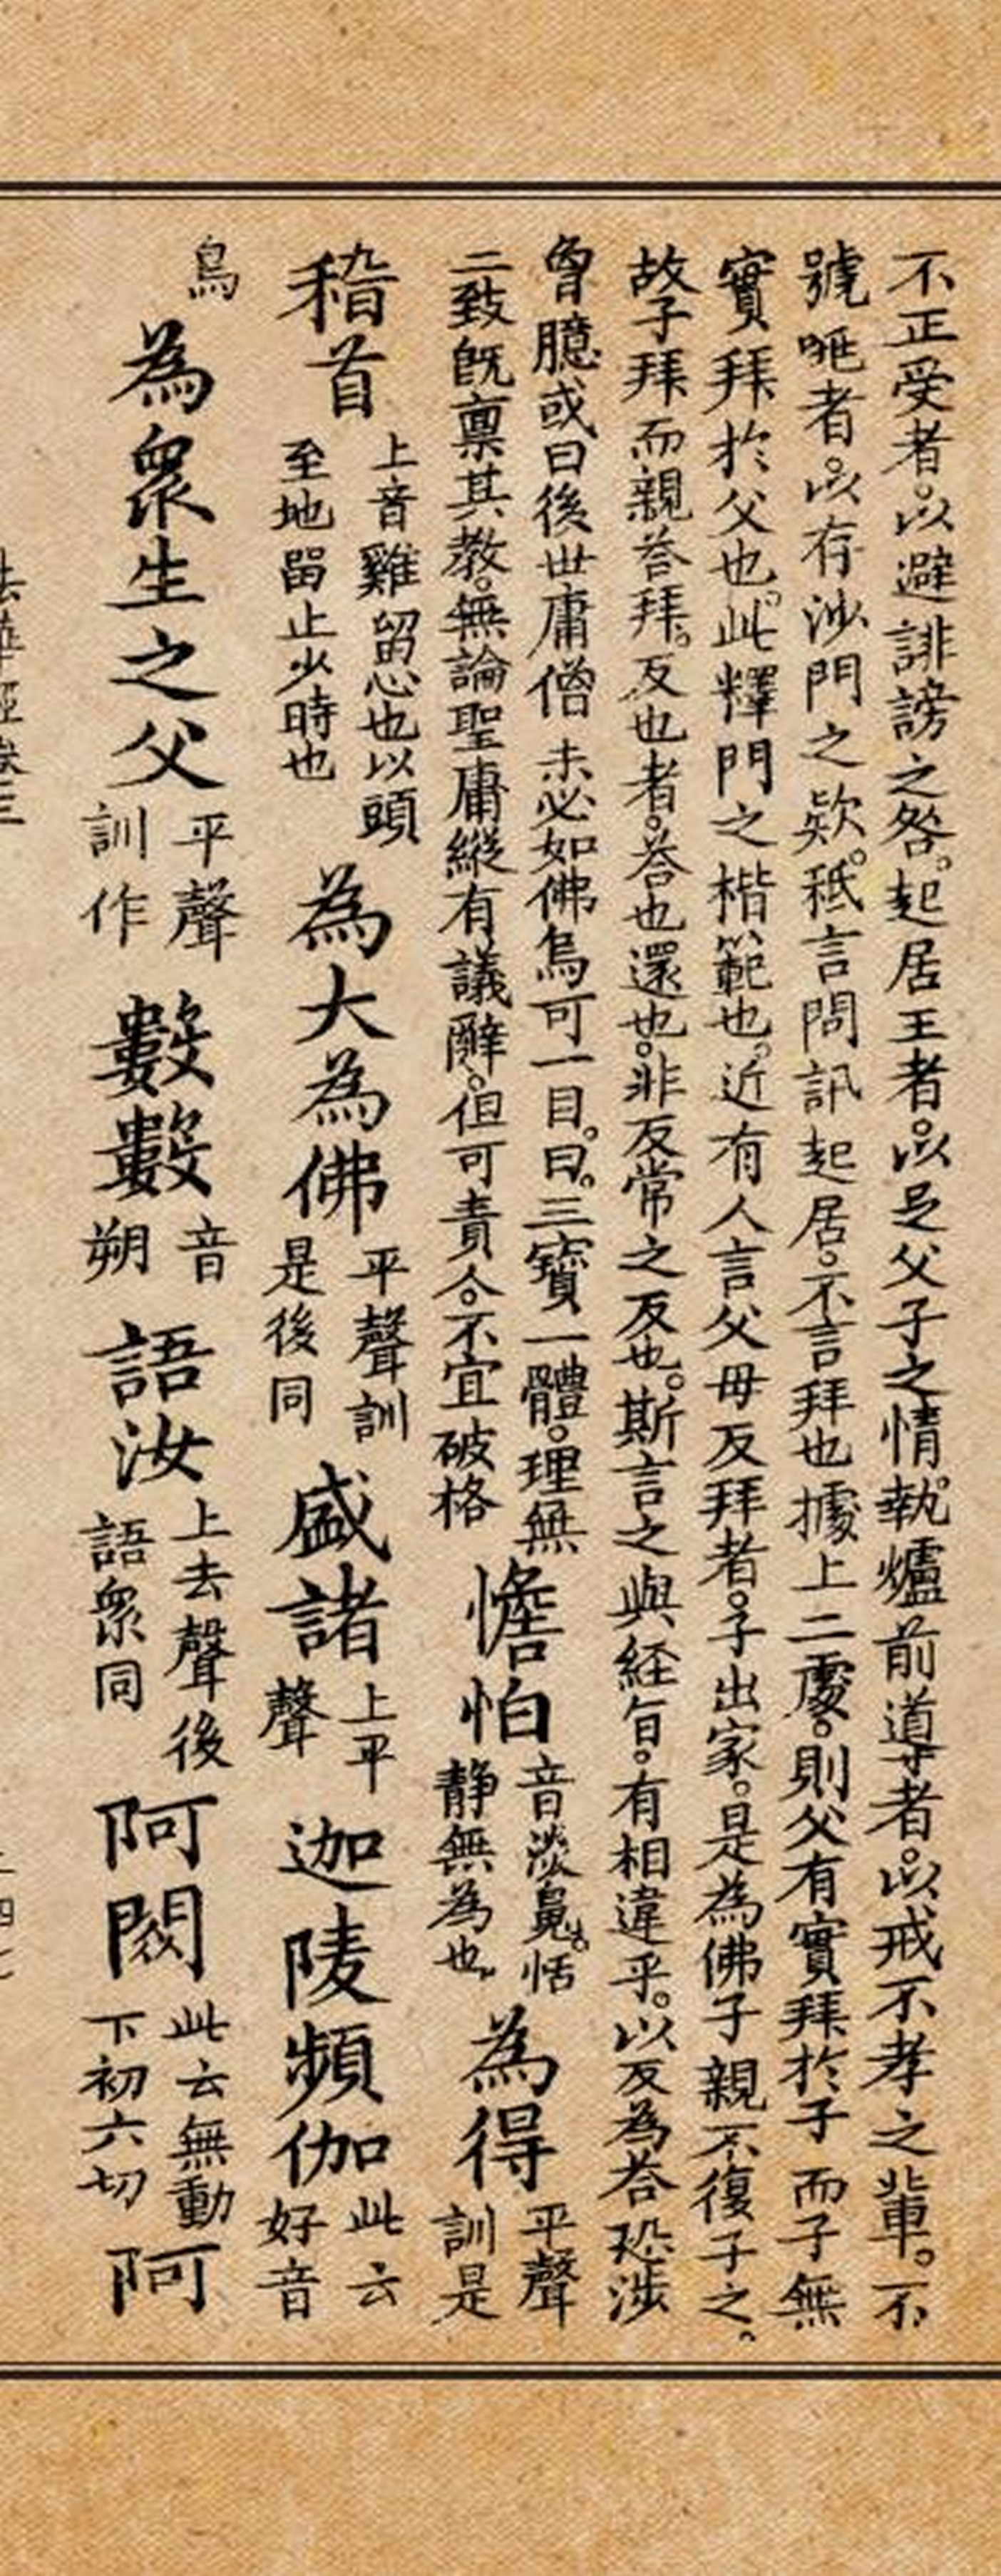 不正受者。以避誹謗之咎。起居王者。以足父子之情。執爐前導者。以戒不孝之輩。不
號咃者。以存沙門之欵。秪言問訊起居。不言拜也據上二處。則父有實拜於子而子無
實拜於父也。此釋門之楷範也。近有人言父母反拜者。子出家。是為佛子親不復子之。
故子拜而親荅拜。反也者。荅也還也。非反常之反也。斯言之與経旨。有相違乎。以反為荅恐涉
胷臆或曰後世庸僧未必如佛烏可一目。曰。三寶一體。理無
二致旣禀其教。無論聖庸縱有議辭。但可責人。不宜破格 憺怕 音淡亳。恬静無為也 為得 平聲訓是
稽首 上音雞留心也以頭至地畱止少時也 為大為佛 平聲訓是後同 盛諸 上平聲 迦陵頻伽 此云好音
鳥 為衆生之父 平聲訓作 數數 音朔 語汝 上去聲後語衆同 阿閦 此云無動下初六切 阿